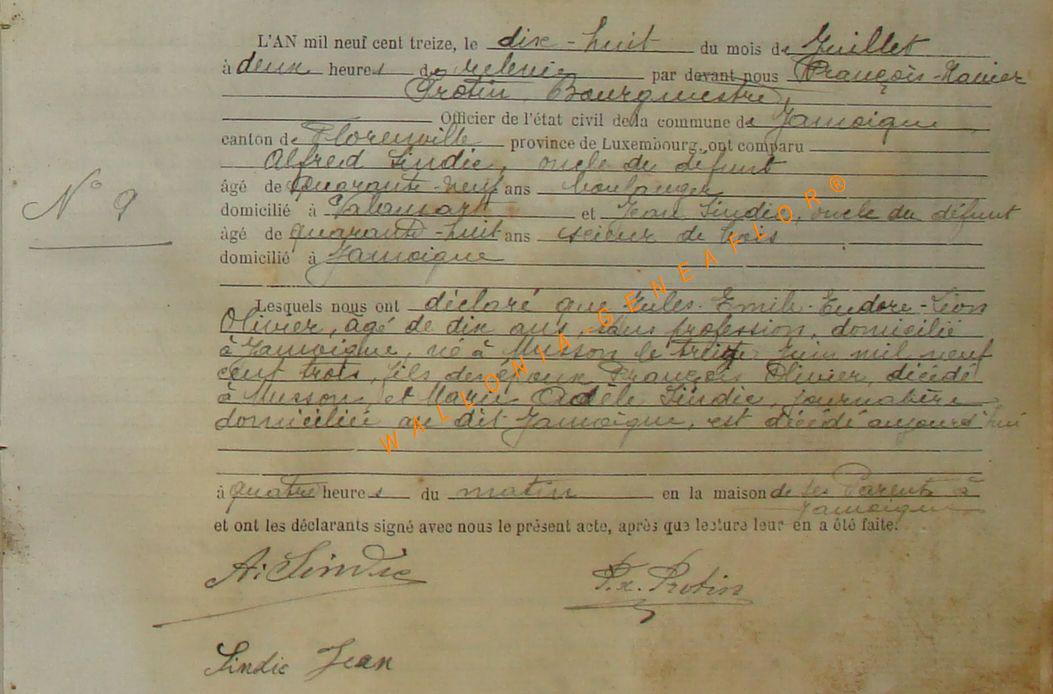 L'AN mil neuf cent treize, le dix-huit du mois de Juillet
à deux heures de relevée par devant nous François-Xavier
Protin, Bourgmestre,
Officier de l'état civil de la commune de Jamoigne
canton de Florenville province de Luxembourg, ont comparu
Alfred Sindic, oncle du défunt
N° 9
âgé de Quarante-neuf ans boulanger
domicilié à Valansart et Jean Sindic, oncle du défunt
âgé de quarante-huit ans scieur de bois
domicilié à Jamoigne
Lesquels nous ont déclaré que Jules-Emile-Eudore-Léon
Olivier, âgé de dix ans, sans profession, domicilié
à Jamoigne, né à Musson le treize Juin mil neuf
cent trois, fils des époux François Olivier, décédé
à Musson, et Marie Adèle Sindic, journalière
domiciliée au dit Jamoigne, est décédé aujourd'hui
à quatre heures du matin en la maison de ses Parents à
Jamoigne
et ont les déclarants signé avec nous le présent acte, après que lecture leur en a été faite.
A. Sindic
Fx. Protin
Sindic Jean
WALLONIA-GENEAFLOR®